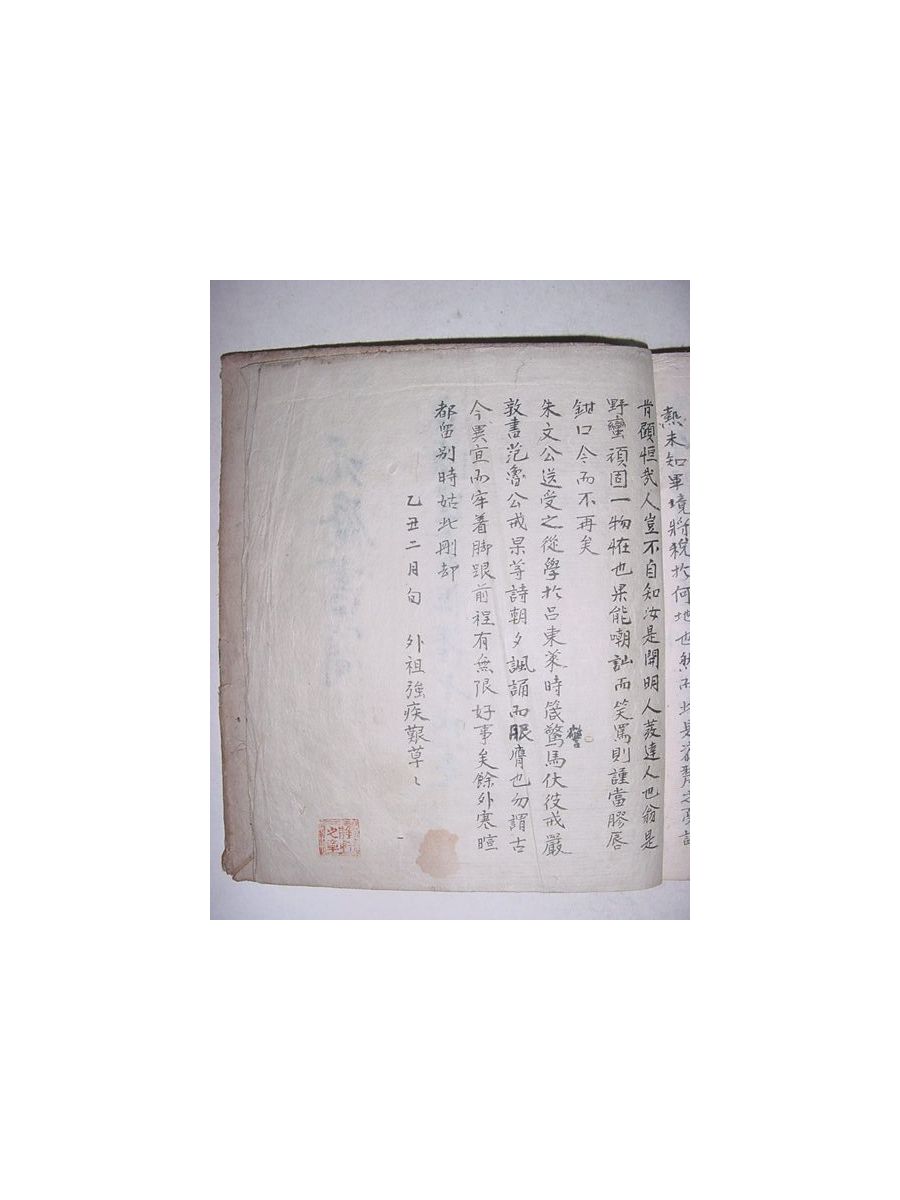 熱未知軍境將稅於何地也然而此是
肯顧恒兂人豈不自知汝是開明人發達人也翁是
野蠻頑固一物怪也果能嘲訕而笑罵則謹當膠唇
鉗口令而不再矣
朱文公送受之從學於呂東萊時筬驚馬伏彼戒嚴
轡
敦書范魯公戒杲等詩朝夕諷誦而服膺也勿謂古
今異宜而牢着脚跟前程有無限好事矣餘外寒暄
都留別時姑此剛却
乙丑二月旬 外祖強疾艱草々